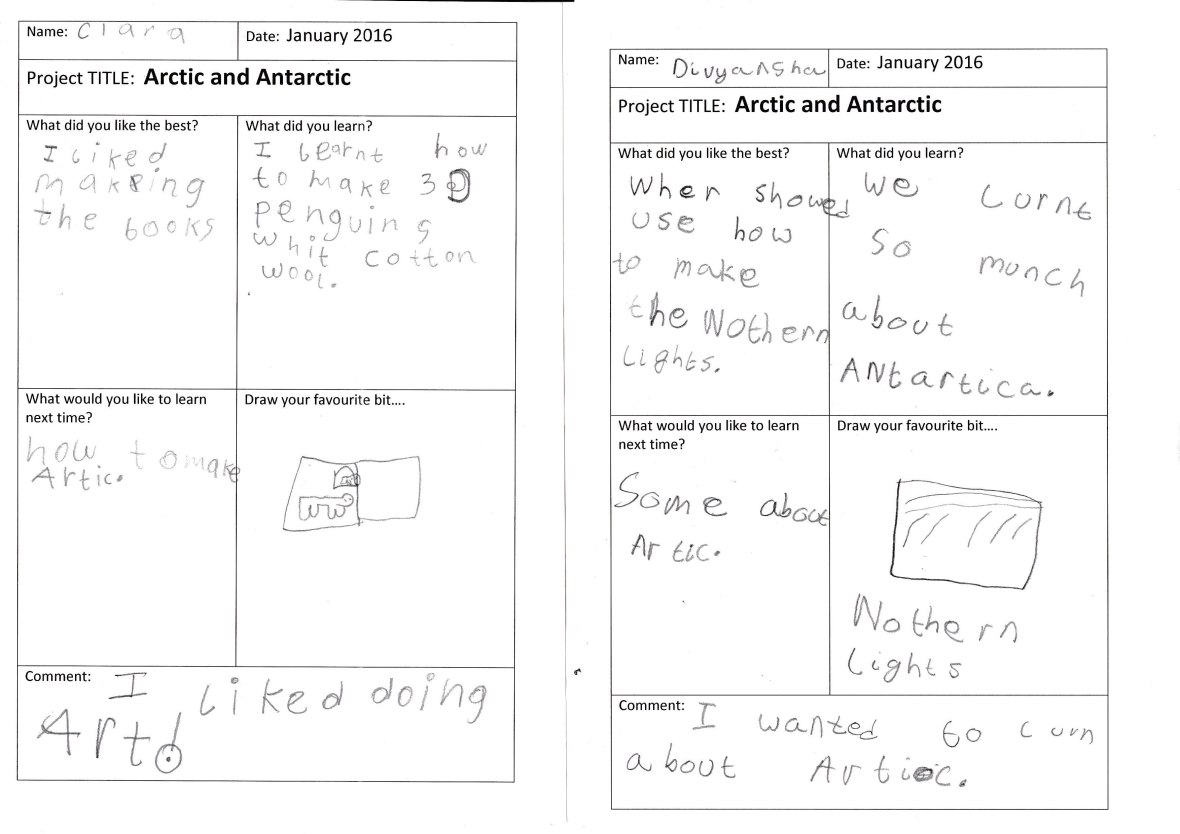 Name: Clara
Date: January 2016
Project TITLE: Arctic and Antarctic
What did you like the best?
I liked
making
the books
What did you learn?
I learnt how
to make 3D
penguins
whit cotton
wool.
What would you like to learn
next time?
how to make
Artic.
Draw your favourite bit....
Comment: I liked doing
Art!
Name: Divyansha
Date: January 2016
Project TITLE: Arctic and Antarctic
What did you like the best?
When showed
use how
to make
the Nothern
Lights.
What did you learn?
We Lurnt
So munch
about
ANtartica.
What would you like to learn
next time?
Some about
Artic.
Draw your favourite bit....
Nothern
Lights
Comment: I wanted to Lurn
about Artic.